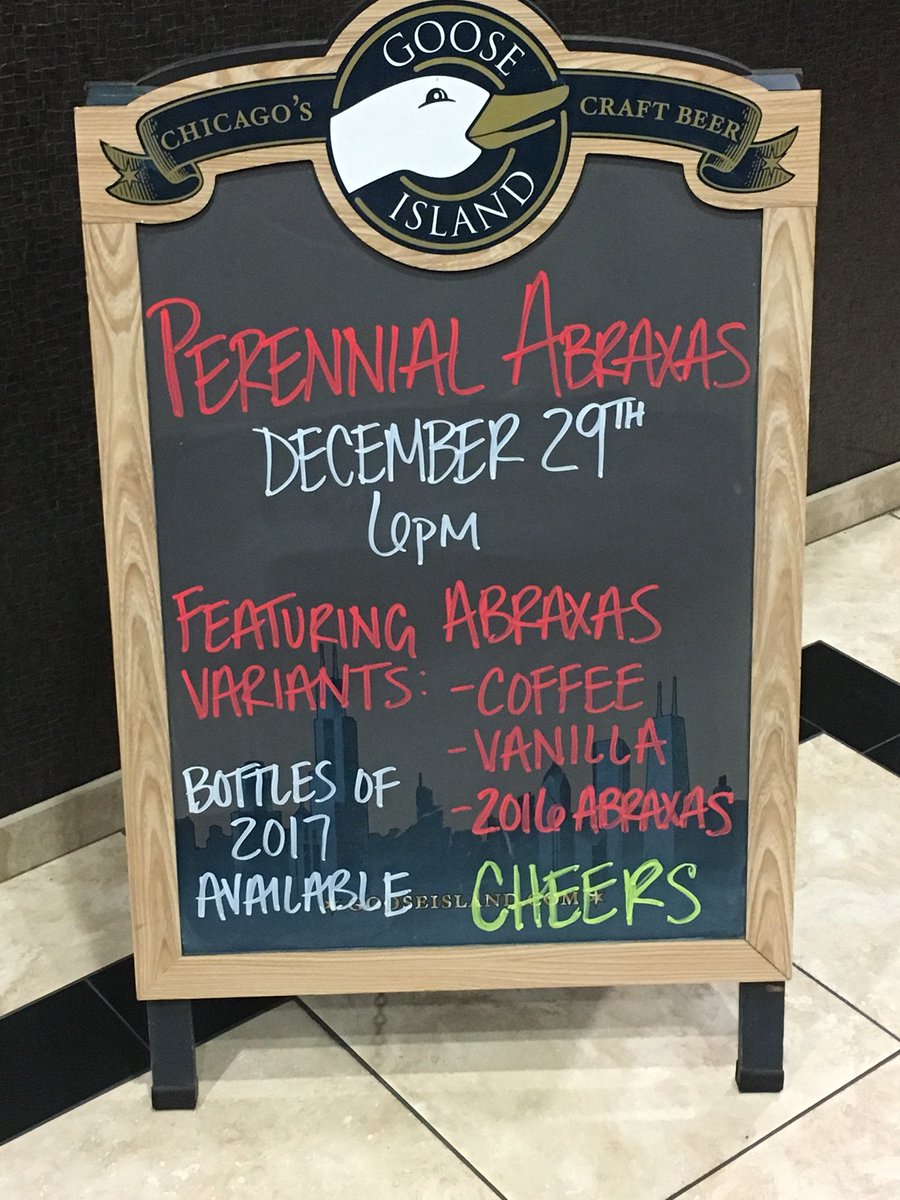 GOOSE
CHICAGO'S
CRAFT BEER
ISLAND
PERENNIAL ABRAXAS
DECEMBER 29TH
6PM
FEATURING ABRAXAS
VARIANTS: -COFFEE
-VANILLA
-2016 ABRAXAS
BOTTLES OF
2017
AVAILABLE
CHEERS
GOOSEISLAND.COM